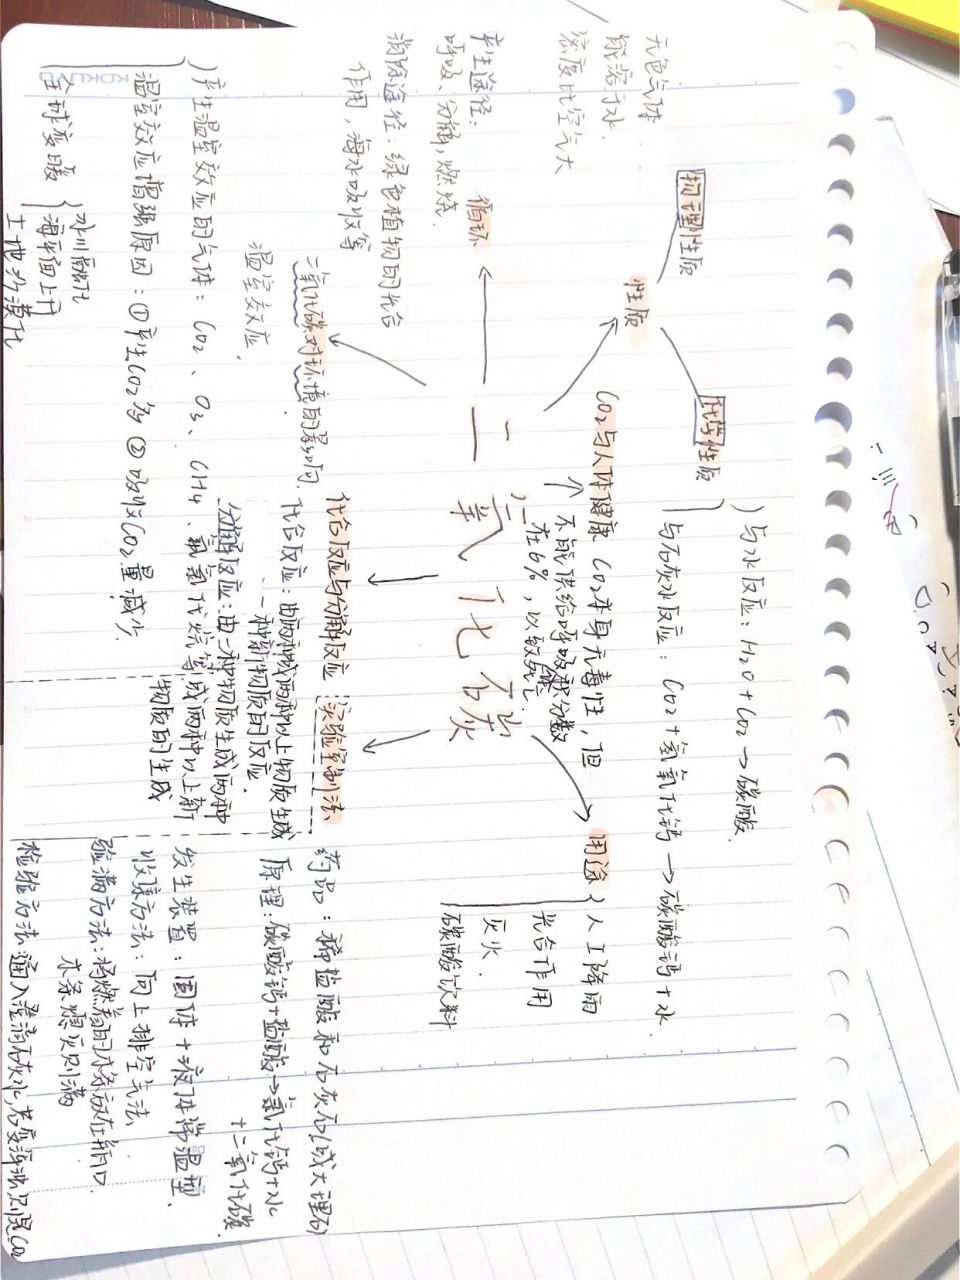 物理性质
无色气体
能溶于水
密度比空气大
性质
化学性质
与水反应：H2O+CO2→碳酸
与石灰水反应：CO2+氢氧化钙→碳酸钙+水
循环
产生途径：
呼吸、分解，燃烧
消除途径：绿色植物的光合
作用，海水吸收等
CO2与人体健康
CO2本身无毒性，但
不能供给呼吸
二氧化碳
用途
人工降雨
光合作用
灭火
碳酸饮料
二氧化碳对环境的影响
温室效应
产生温室效应的气体：CO2、O3、CH4、氟氯代烷等
温室效应增强原因：①产生CO2多 ②吸收CO2量减少
全球变暖
冰川融化
海平面上升
土地沙漠化
化合反应与分解反应
化合反应：由两种或两种以上物质生成
一种新物质的反应
分解反应：由一种物质生成两种
或两种以上新
物质的生成
实验室制法
药品：稀盐酸和石灰石（或大理石）
原理：碳酸钙+盐酸→氯化钙+水
+二氧化碳
发生装置：固体+液体常温型
收集方法：向上排空气法
验满方法：将燃着的木条放在瓶口
木条熄灭则满
检验方法 通入澄清石灰水，若变浑浊则是CO2
KOKUYO